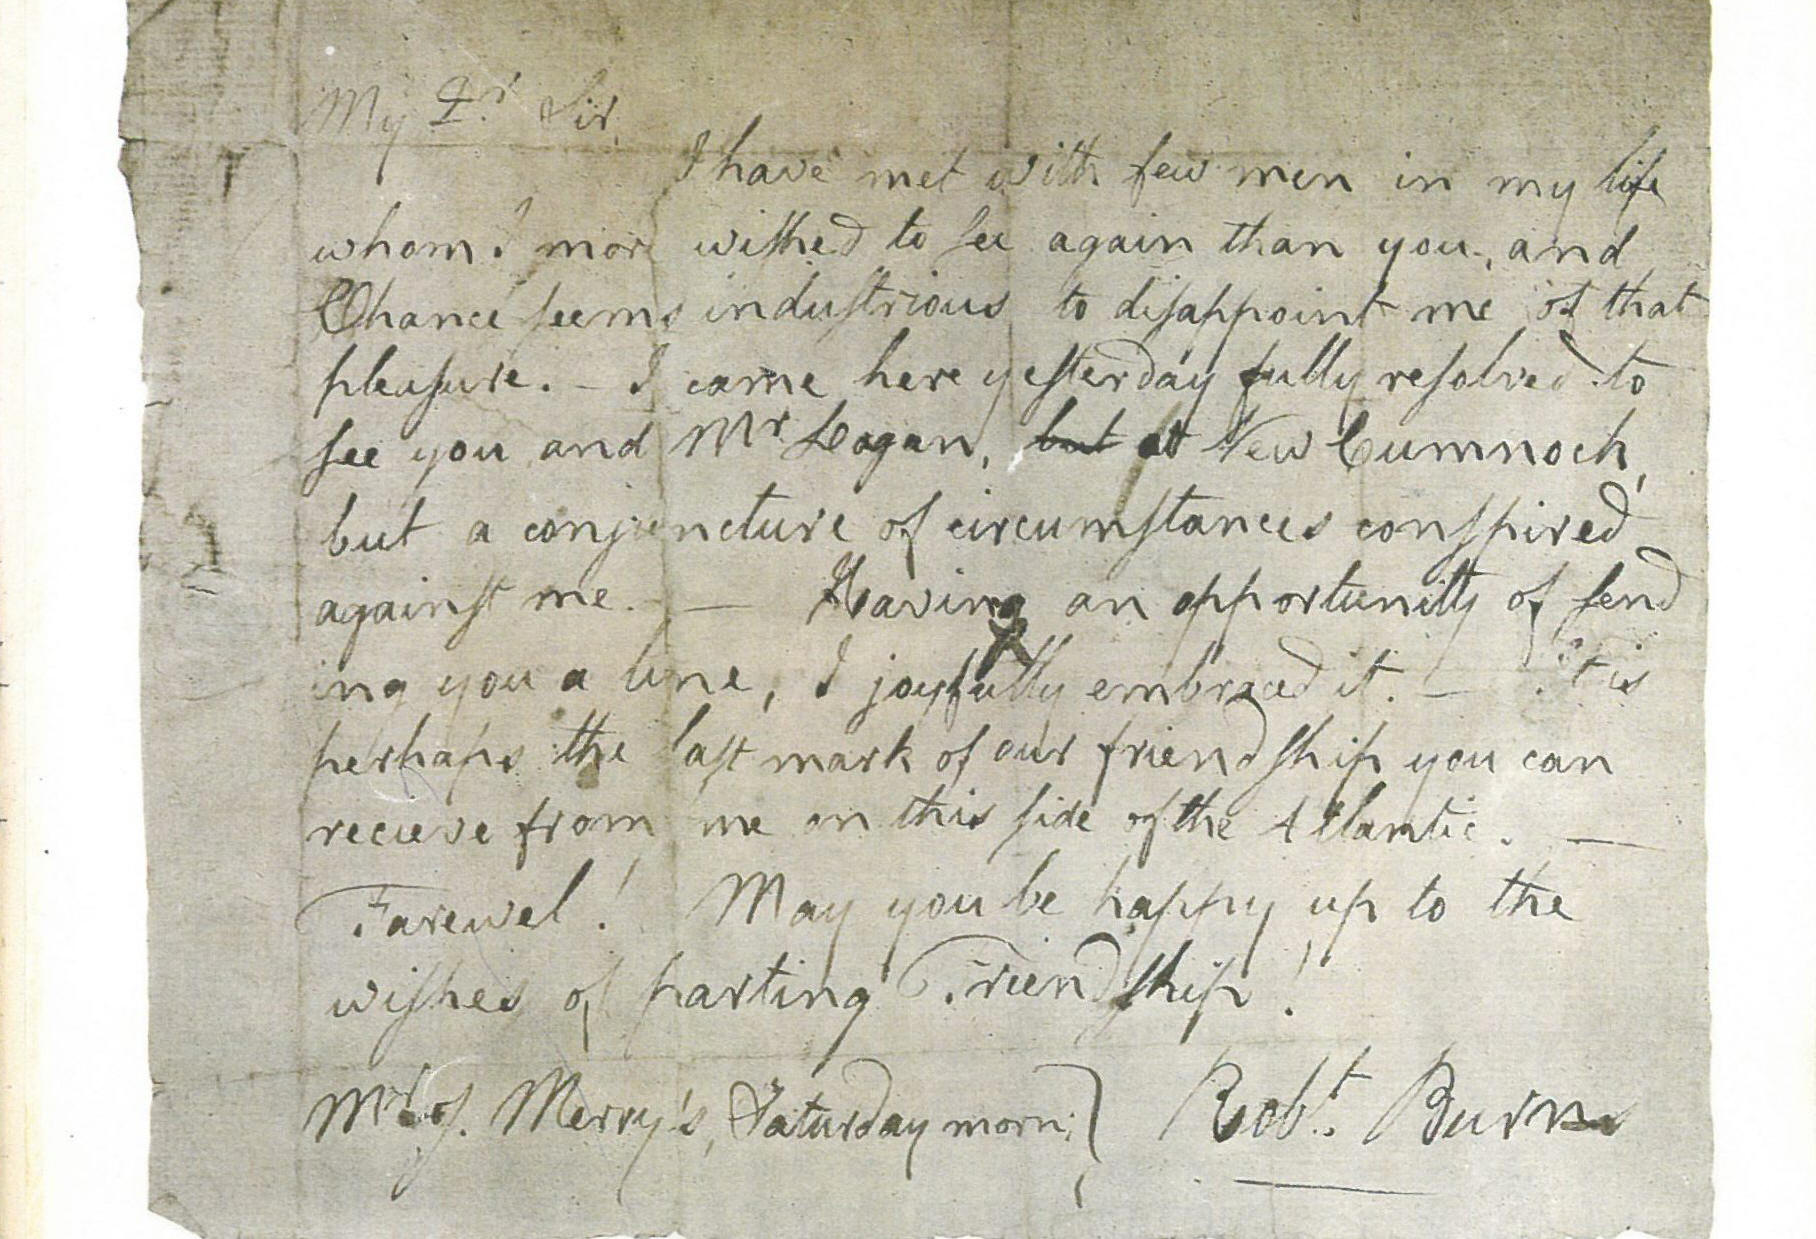 My Dr Sir,
I have met with few men in my life
whom I more wished to see again than you, and
Chance seems industrious to disappoint me of that
pleasure. – I came here yesterday fully resolved to
see you and Mr Logan, but at New Cumnock,
but a conjuncture of circumstances conspired
against me. — Having an opportunity of send
ing you a line, I joyfully embraced it. — It is
perhaps the last mark of our friendship you can
recieve from me on this side of the Atlantic. —
Farewel! May you be happy up to the
wishes of parting Friendship!
Mr J. Merry's, Saturday morn: } Robt. Burns